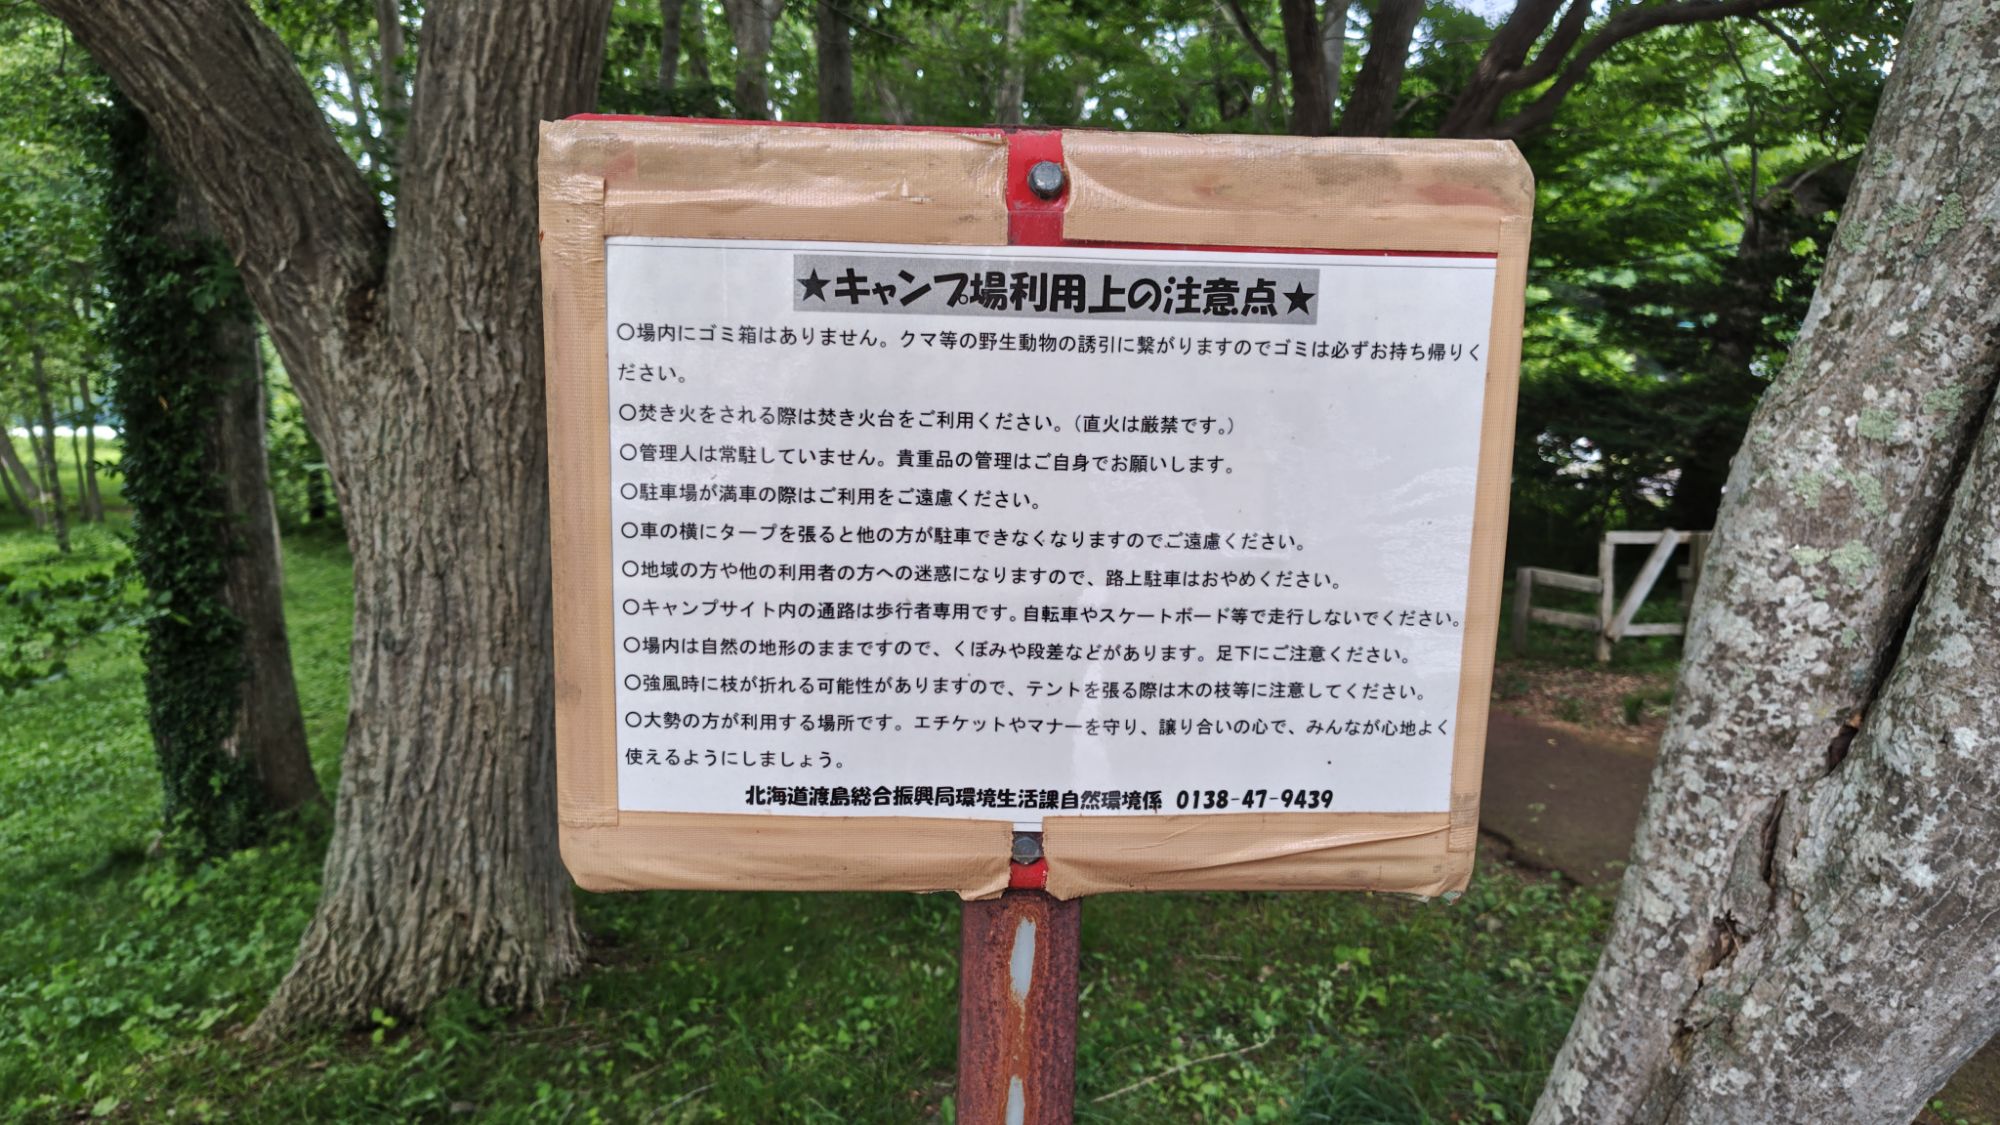 ★キャンプ場利用上の注意点★
〇場内にゴミ箱はありません。クマ等の野生動物の誘引に繋がりますのでゴミは必ずお持ち帰りく
ださい。
〇焚き火をされる際は焚き火台をご利用ください。（直火は厳禁です。）
〇管理人は常駐していません。貴重品の管理はご自身でお願いします。
〇駐車場が満車の際はご利用をご遠慮ください。
〇車の横にタープを張ると他の方が駐車できなくなりますのでご遠慮ください。
〇地域の方や他の利用者の方への迷惑になりますので、路上駐車はおやめください。
〇キャンプサイト内の通路は歩行者専用です。自転車やスケートボード等で走行しないでください。
〇場内は自然の地形のままですので、くぼみや段差などがあります。足下にご注意ください。
〇強風時に枝が折れる可能性がありますので、テントを張る際は木の枝等に注意してください。
〇大勢の方が利用する場所です。エチケットやマナーを守り、譲り合いの心で、みんなが心地よく
使えるようにしましょう。
北海道渡島総合振興局環境生活課自然環境係 0138-47-9439